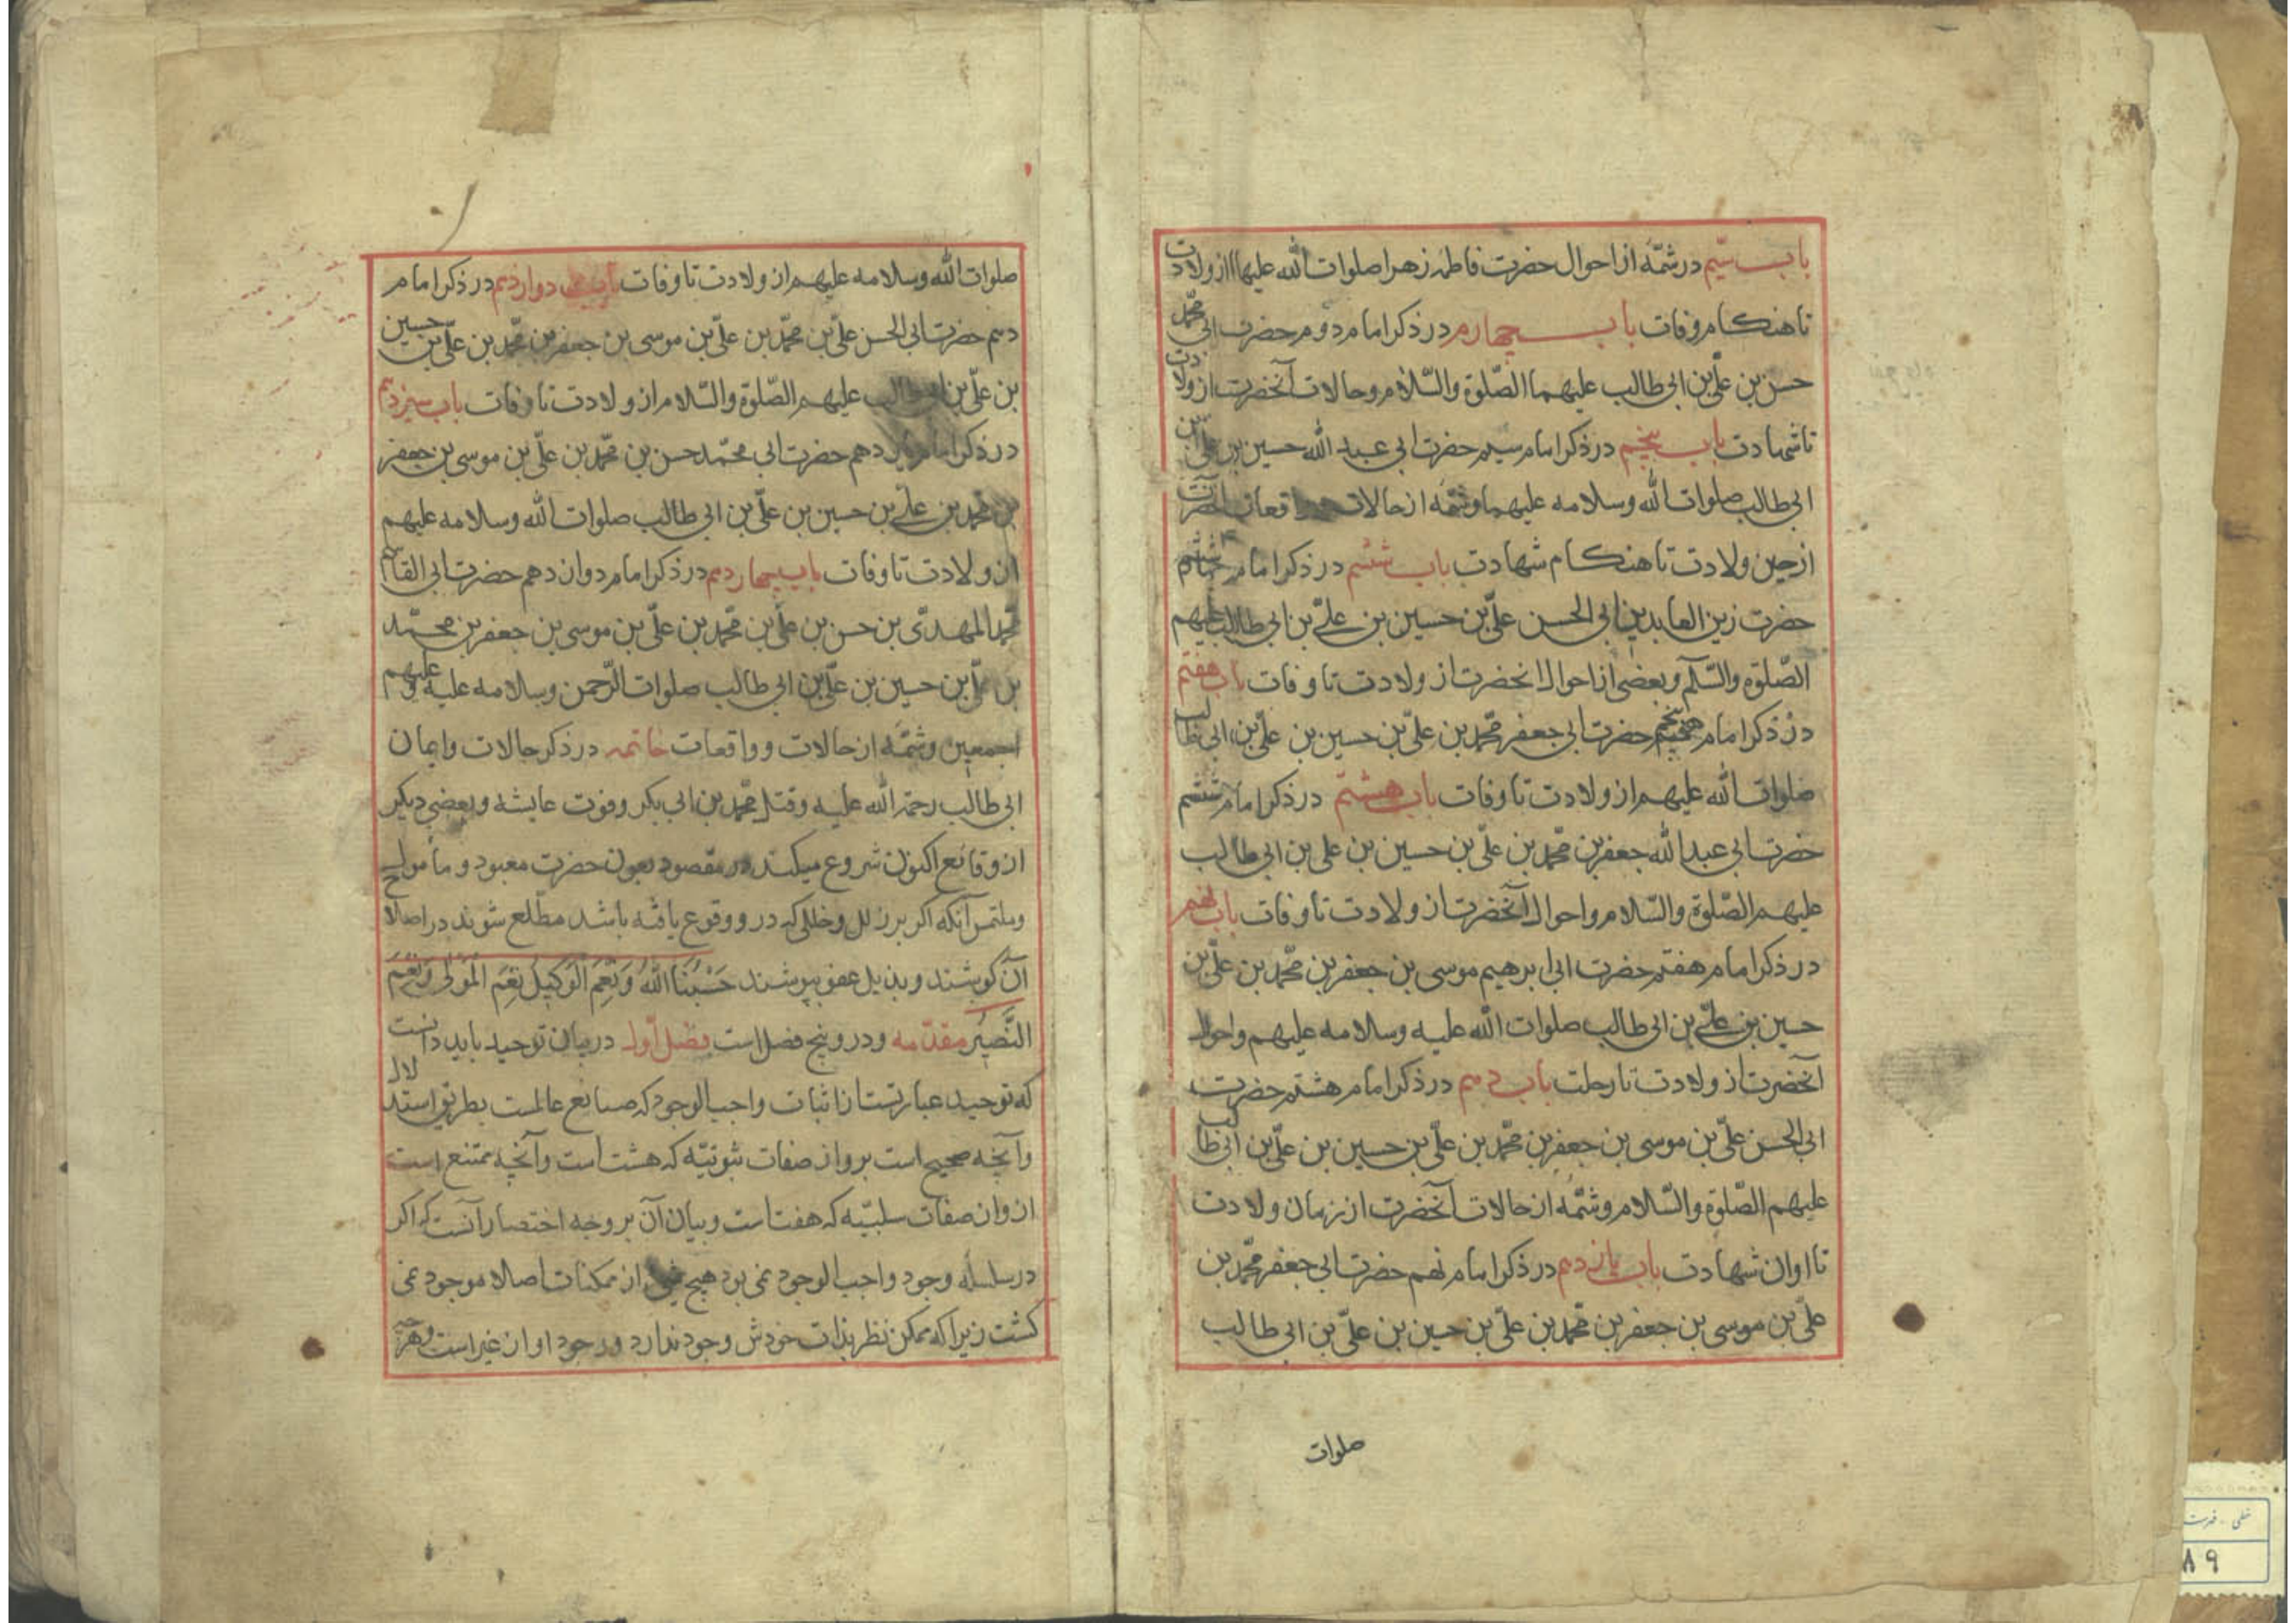 باب سیّم در شمّهٔ از احوال حضرت فاطمه زهرا صلوات الله علیها از ولادت
تا هنکام وفات باب چهارم در ذکر امام دوم حضرت ابی محمّد
حسن بن علیّ بن ابی طالب علیهما الصّلوة والسّلام و حالات آنحضرت از ولادت
تا شهادت باب پنجم در ذکر امام سیم حضرت ابی عبد الله حسین بن علیّ بن
ابی طالب صلوات الله وسلامه علیهما و شمّه از حالات و واقعات آنحضرت
از حین ولادت تا هنکام شهادت باب ششم در ذکر امام چهارم
حضرت زین العابدین ابی الحسن علیّ بن حسین بن علیّ بن ابی طالب علیهم
الصّلوة والسّلم و بعضی از احوال انحضرت از ولادت تا وفات باب هفتم
در ذکر امام پنجم حضرت ابی جعفر محمّد بن علیّ بن حسین بن علیّ بن ابی طالب
صلوات الله علیهم از ولادت تا وفات باب هشتم در ذکر امام ششم
حضرت ابی عبد الله جعفر بن محمّد بن علیّ بن حسین بن علی بن ابی طالب
علیهم الصّلوة والسّلام و احوال آنحضرت از ولادت تا وفات باب نهم
در ذکر امام هفتم حضرت ابی ابرهیم موسی بن جعفر بن محمّد بن علیّ بن
حسین بن علیّ بن ابی طالب صلوات الله علیه وسلامه علیهم و احوال
آنحضرت از ولادت تا رحلت باب دهم در ذکر امام هشتم حضرت
ابی الحسن علیّ بن موسی بن جعفر بن محمّد بن علیّ بن حسین بن علیّ بن ابی طالب
علیهم الصّلوة والسّلام و شمّه از حالات آنحضرت از زمان ولادت
تا اوان شهادت باب یازدهم در ذکر امام نهم حضرت ابی جعفر محمّد بن
علیّ بن موسی بن جعفر بن محمّد بن علیّ بن حسین بن علیّ بن ابی طالب
صلوات
صلوات الله وسلامه علیهم از ولادت تا وفات باب دوازدهم در ذکر امام
دهم حضرت ابی الحسن علیّ بن محمّد بن علیّ بن موسی بن جعفر بن محمّد بن علیّ بن حسین
بن علیّ بن ابی طالب علیهم الصّلوة والسّلام از ولادت تا وفات باب سیزدهم
در ذکر امام یازدهم حضرت ابی محمّد حسن بن محمّد بن علیّ بن موسی بن جعفر
بن محمّد بن علیّ بن حسین بن علیّ بن ابی طالب صلوات الله وسلامه علیهم
از ولادت تا وفات باب چهاردهم در ذکر امام دوازدهم حضرت ابی القاسم
محمّد المهدیّ بن حسن بن علیّ بن محمّد بن علیّ بن موسی بن جعفر بن محمّد
بن علیّ بن حسین بن علیّ بن ابی طالب صلوات الرّحمن وسلامه علیه وعلیهم
اجمعین و شمّه از حالات و واقعات خاتمه در ذکر حالات و ایمان
ابی طالب رحمة الله علیه و قتل محمّد بن ابی بکر و فوت عایشه و بعضی دیکر
از وقائع اکنون شروع میکند در مقصود بعون حضرت معبود و مأمول
و ملتمس آنکه اکر بر زلل و خللی که در و وقوع یافته باشد مطّلع شوند در اصلاح
آن کوشند و بذیل عفو بپوشند حَسْبُنَا اللهُ وَنِعْمَ الْوَکیلُ نِعْمَ الْمَوْلی وَنِعْمَ
النَّصیر مقدّمه و در و پنج فصل است فصل اوّل در بیان توحید باید دانست
که توحید عبارتست از اثبات واجب الوجود که صانع عالمست بطریق استدلال
و آنچه صحیح است برو از صفات ثبوتیّه که هشت است و آنچه ممتنع است
از وان صفات سلبیّه که هفت است و بیان آن بر وجه اختصار آنست که اکر
در سلسله وجود واجب الوجود نمی بود هیچ از ممکنات اصالا موجود نمی
کشت زیرا که ممکن نظر بذات خودش وجود ندارد و وجود او از غیر است و هرچه
خطی - فهرست
۸۹